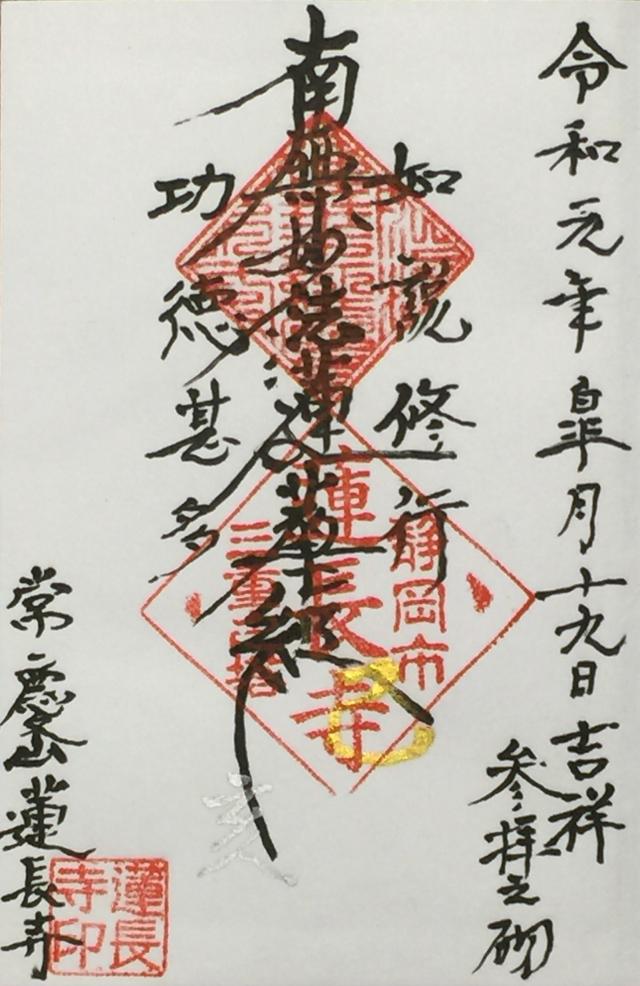 令和元年皐月十九日吉祥
参拝之砌
如説修行
南無妙法蓮華経
功徳甚多
常慶山蓮長寺
静岡市
蓮長寺
三重宝塔
巳
亥
蓮長
寺印